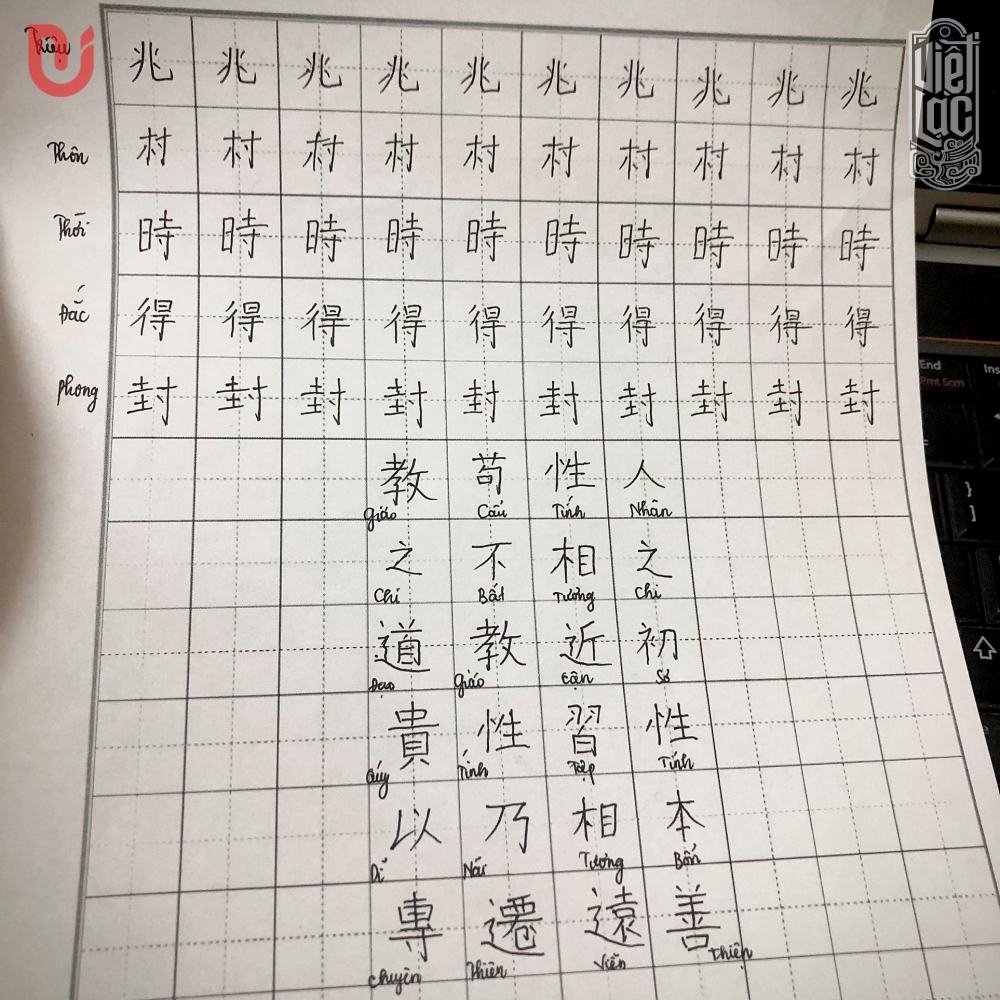 Triệu 兆 兆 兆 兆 兆 兆 兆 兆 兆 兆
Thôn 村 村 村 村 村 村 村 村 村 村
Thời 時 時 時 時 時 時 時 時 時 時
Đắc 得 得 得 得 得 得 得 得 得 得
Phong 封 封 封 封 封 封 封 封 封 封
教 苟 性 人
Giáo Cẩu Tính Nhân
之 不 相 之
Chi Bất Tương Chi
道 教 近 初
Đạo Giáo Cận Sơ
貴 性 習 性
Qúy Tính Tập Tính
以 乃 相 本
Dĩ Nãi Tương Bổn
專 遷 遠 善
Chuyên Thiên Viễn Thiện
Việt Lạc
End
Prnt Scrn
Ins
}
]